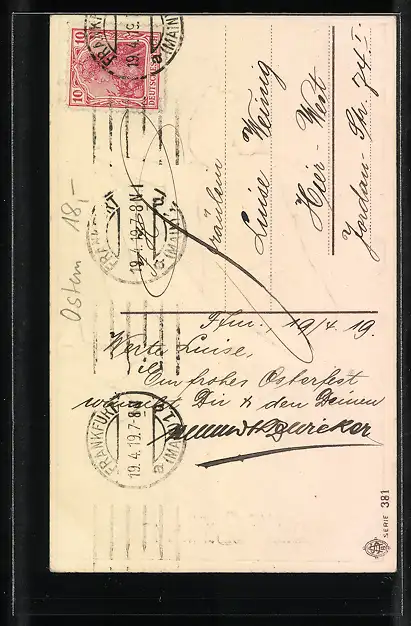 10 10
DEUTSCHES
FRANKFURT
19.4.19
a (MAIN)
FRANKFURT
19.4.19.7-8N
a (MAIN)
FRANKFURT
19.4.19.7-8N
a (MAIN) 1
Ostern 18,-
Fräulein
Luise Weinig
Hier - West
Jordan-Str. 74 I.
Ffm., 19/4. 19.
Werte Luise,
Ein frohes Osterfest
wünscht Dir & den Deinen
SERIE 381